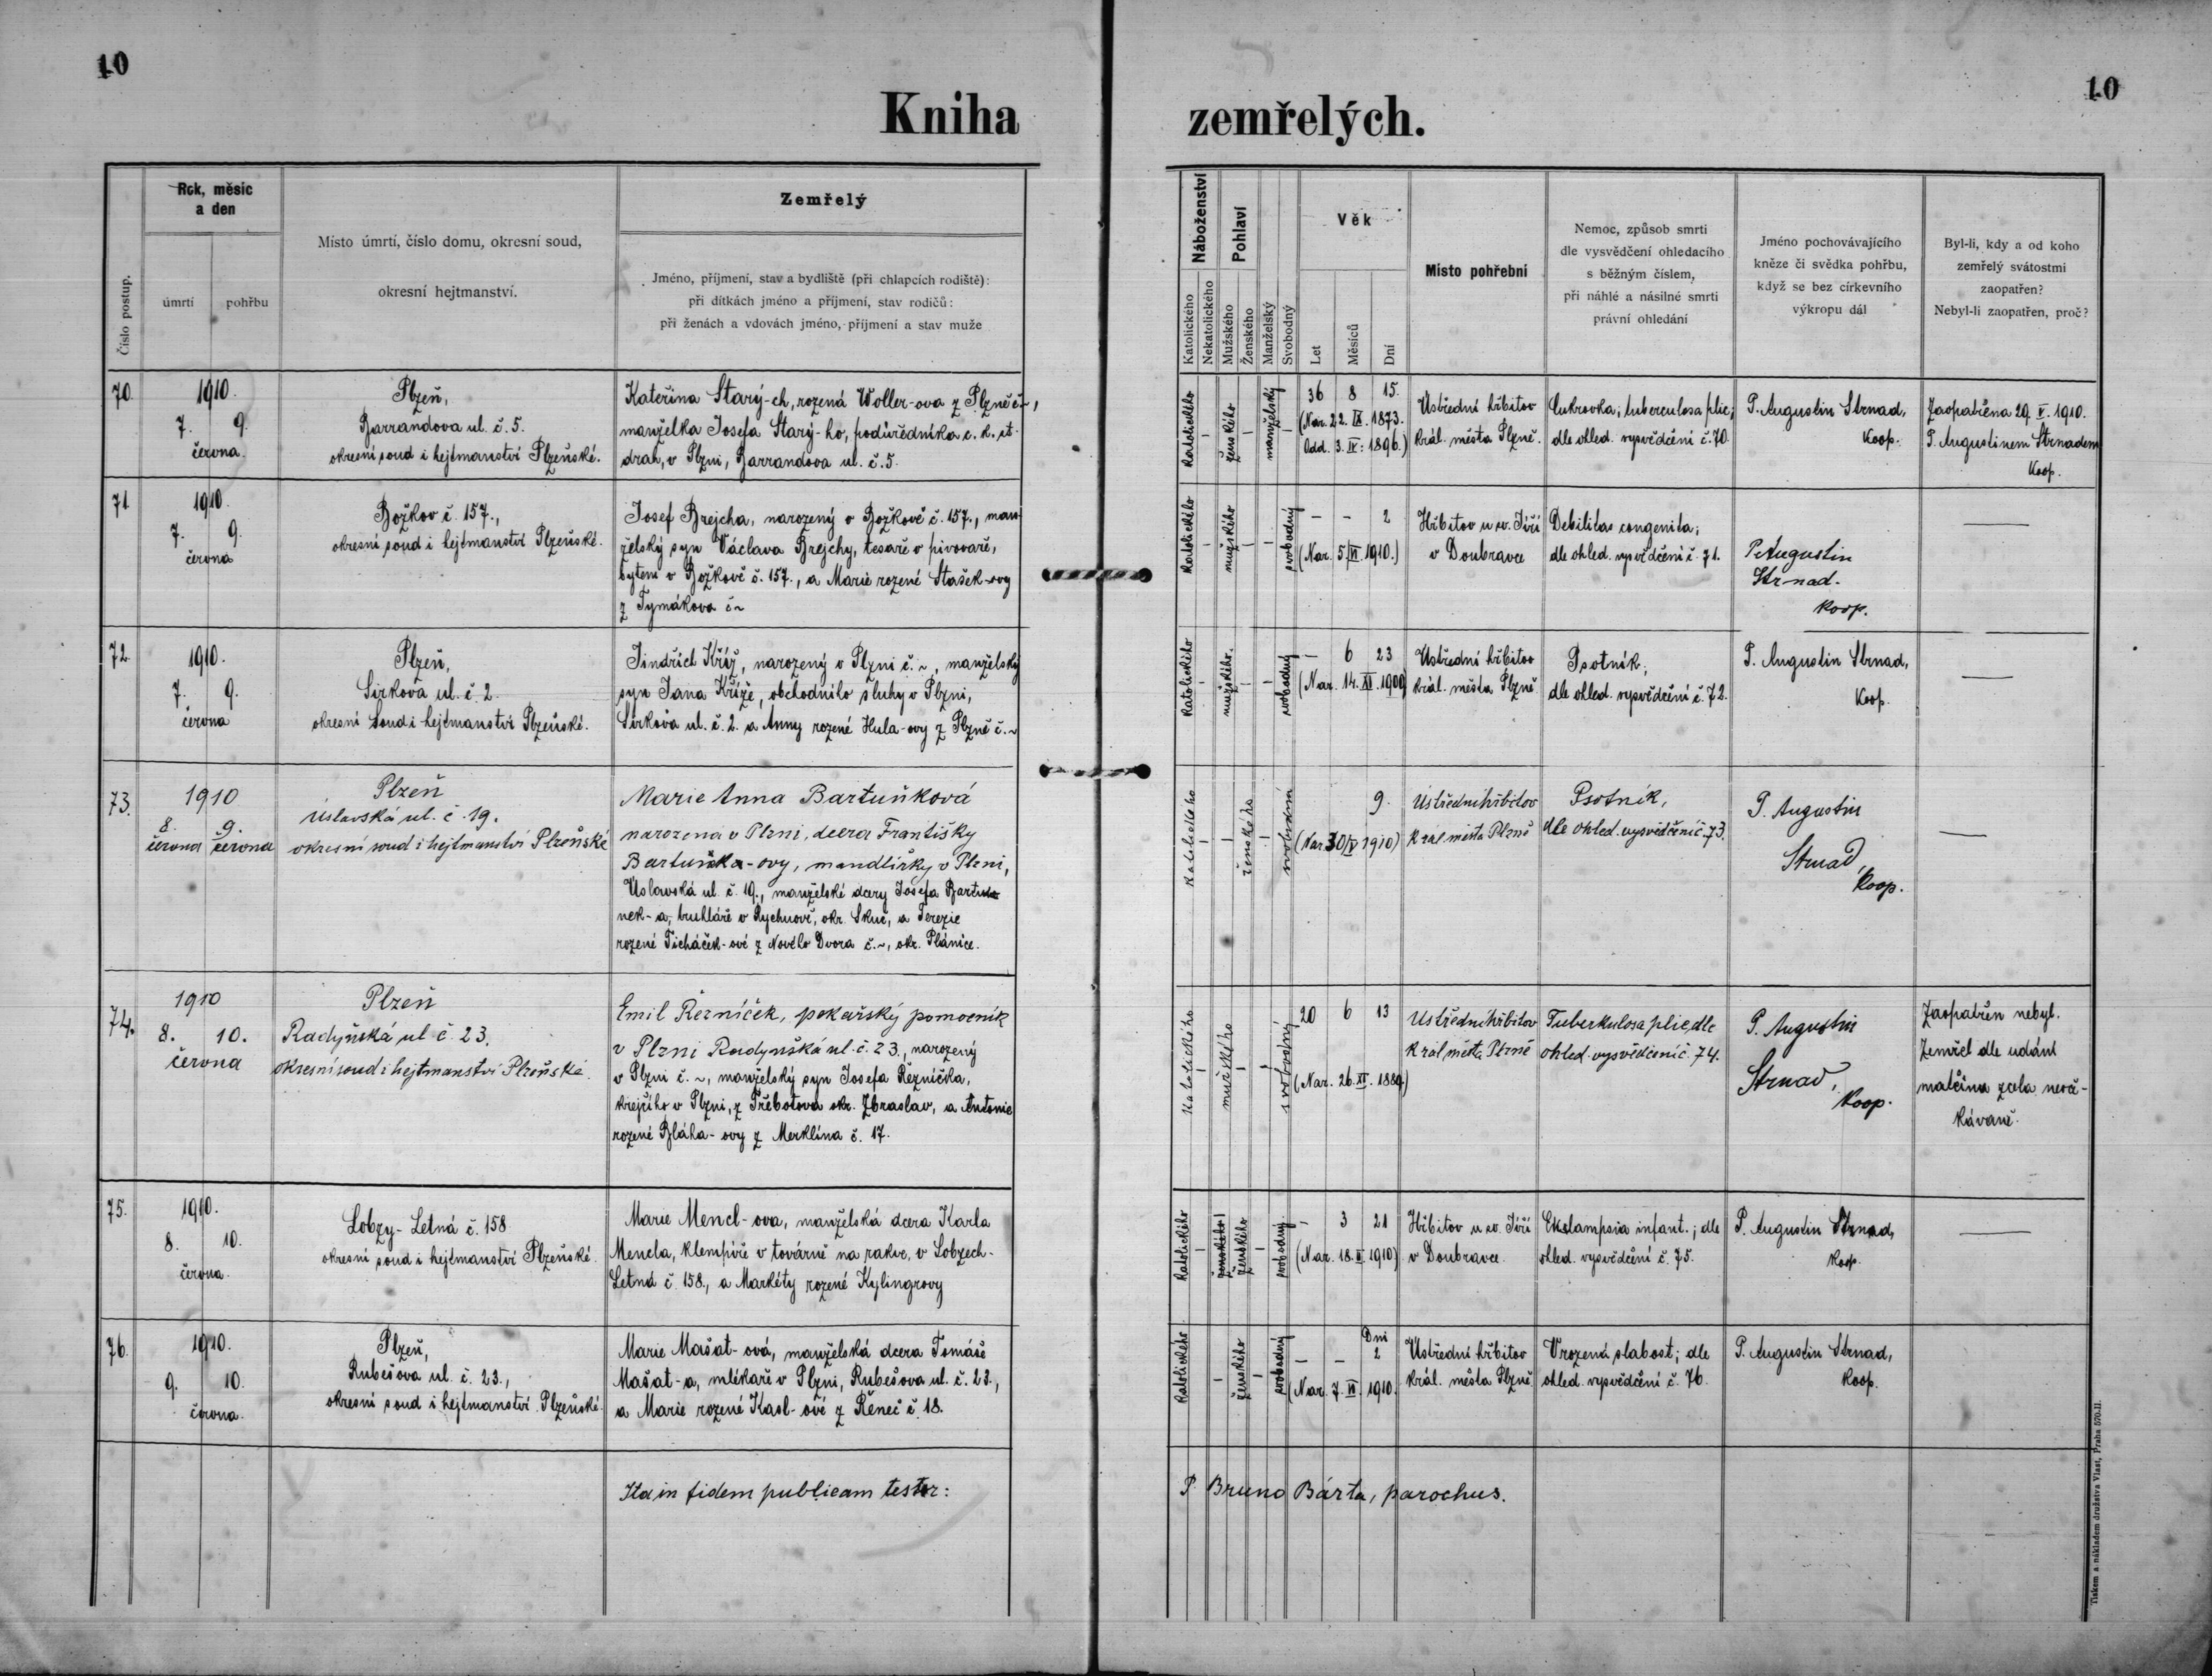 10
10
Kniha
zemřelých.
Číslo postup.
Rok, měsíc
a den
úmrtí
pohřbu
Místo úmrtí, číslo domu, okresní soud,
okresní hejtmanství.
Zemřelý
Jméno, příjmení, stav a bydliště (při chlapcích rodiště):
při dítkách jméno a příjmení, stav rodičů:
při ženách a vdovách jméno, příjmení a stav muže
Náboženství
Katolického
Nekatolického
Pohlaví
Mužského
Ženského
Manželský
Svobodný
Věk
Let
Měsíců
Dní
Místo pohřební
Nemoc, způsob smrti
dle vysvědčení ohledacího
s běžným číslem,
při náhlé a násilné smrti
právní ohledání
Jméno pochovávajícího
kněze či svědka pohřbu,
když se bez církevního
výkropu dál
Byl-li, kdy a od koho
zemřelý svátostmi
zaopatřen?
Nebyl-li zaopatřen, proč?
70
1910.
7. 9.
června.
Plzeň,
Barrandova ul. č. 5.
okresní soud i hejtmanství Plzeňské.
Kateřina Starý-ch, rozená Woller-ova z Plzně č ~,
manželka Josefa Starý-ho, podúředníka c. k. st.
drah, v Plzni, Barrandova ul. č. 5.
Katolického
–
ženského
–
manželský
–
36 8 15.
(Nar. 22. IX. 1873.
Odd. 3. IV: 1896.)
Ústřední hřbitov
král. města Plzně.
Cukrovka; tuberculosa plic;
dle ohled. vysvědčení č. 70.
P. Augustin Strnad,
Koop.
Zaopatřena 29. V. 1910.
P. Augustinem Strnadem
Koop.
71
1910.
7. 9.
června
Božkov č. 157.,
okresní soud i hejtmanství Plzeňské.
Josef Brejcha, narozený v Božkově č. 157., man-
želský syn Václava Brejchy, tesaře v pivovaře,
bytem v Božkově č. 157., a Marie rozené Stašek-ovy
z Tymákova č ~
Katolického
–
mužského
–
–
svobodný
– – 2
(Nar. 5. VI. 1910.)
Hřbitov u sv. Jiří
v Doubravce
Debilitas congenita;
dle ohled. vysvědčení č. 71.
P. Augustin
Strnad.
Koop.
—
72
1910.
7. 9.
června
Plzeň,
Sirkova ul. č. 2
okresní soud i hejtmanství Plzeňské.
Jindřich Kříž, narozený v Plzni č. ~, manželský
syn Jana Kříže, obchodního sluhy v Plzni,
Sirkova ul. č. 2. a Anny rozené Hula-ovy z Plzně č. ~
Katolického
–
mužského.
–
–
svobodný
– 6 23
(Nar. 14. XI. 1909)
Ústřední hřbitov
král. města Plzně
Psotník;
dle ohled. vysvědčení č. 72.
P. Augustin Strnad,
Koop.
—
73.
1910
8. 9.
června června
Plzeň
Úslavská ul. č. 19.
okresní soud i hejtmanství Plzeňské
Marie Anna Bartuňková
narozena v Plzni, dcera Františky
Bartuňka-ovy, mandlířky v Plzni,
Úslavská ul. č. 19., manželské dcery Josefa Bartu
nek-a, truhláře v Rychnově, okr. Skuč, a Terezie
rozené Ticháček-ové z Nového Dvora č. ~, okr. Plánice.
Katolického
–
–
ženského
–
svobodná
9.
(Nar. 30/V 1910)
Ústřední hřbitov
král města Plzně
Psotník,
dle ohled. vysvědčení č. 73.
P. Augustin
Strnad,
Koop.
—
74.
1910
8. 10.
června
Plzeň
Radyňská ul č. 23.
okresní soud i hejtmanství Plzeňské.
Emil Řezníček, pekařský pomocník
v Plzni Radyňská ul. č. 23., narozený
v Plzni č. ~, manželský syn Josefa Řezníčka,
krejčího v Plzni, z Třebotova okr. Zbraslav, a Antonie
rozené Bláha-ovy z Merklína č. 17.
Katolického
–
mužského
–
–
svobodný
20 6 13
(Nar. 26. XI. 1889.)
Ústřední hřbitov
král města Plzně
Tuberkulosa plic, dle
ohled. vysvědčení č. 74.
P. Augustin
Strnad,
Koop.
Zaopatřen nebyl.
Zemřel dle udání
matčina zcela neoče-
kávaně.
75.
1910.
8. 10.
června.
Lobzy-Letná č. 158
okresní soud i hejtmanství Plzeňské.
Marie Mencl-ova, manželská dcera Karla
Mencla, klempíře v továrně na rakve, v Lobzech-
Letná č. 158., a Markéty rozené Kylingrovy
Katolického
–
ženského
ženského
–
svobodný
– 3 21
(Nar. 18. II. 1910)
Hřbitov u sv. Jiří
v Doubravce.
Eklampsia infant.; dle
ohled. vysvědčení č. 75.
P. Augustin Strnad,
Koop.
—
76.
1910.
9. 10.
června.
Plzeň,
Rubešova ul. č. 23.,
okresní soud i hejtmanství Plzeňské.
Marie Mašat-ová, manželská dcera Tomáše
Mašat-a, mlékaře v Plzni, Rubešova ul. č. 23.,
a Marie rozené Kasl-ové z Řeneč č. 18.
Katolického
–
ženského
–
svobodný
Dni
– – 2
(Nar. 7. VI. 1910.
Ústřední hřbitov
král. města Plzně
Vrozená slabost; dle
ohled. vysvědčení č. 76.
P. Augustin Strnad,
Koop.
—
Ita in fidem publicam testor:
P. Bruno Bárta, parochus.
Tiskem a nákladem družstva Vlast, Praha 570-II.